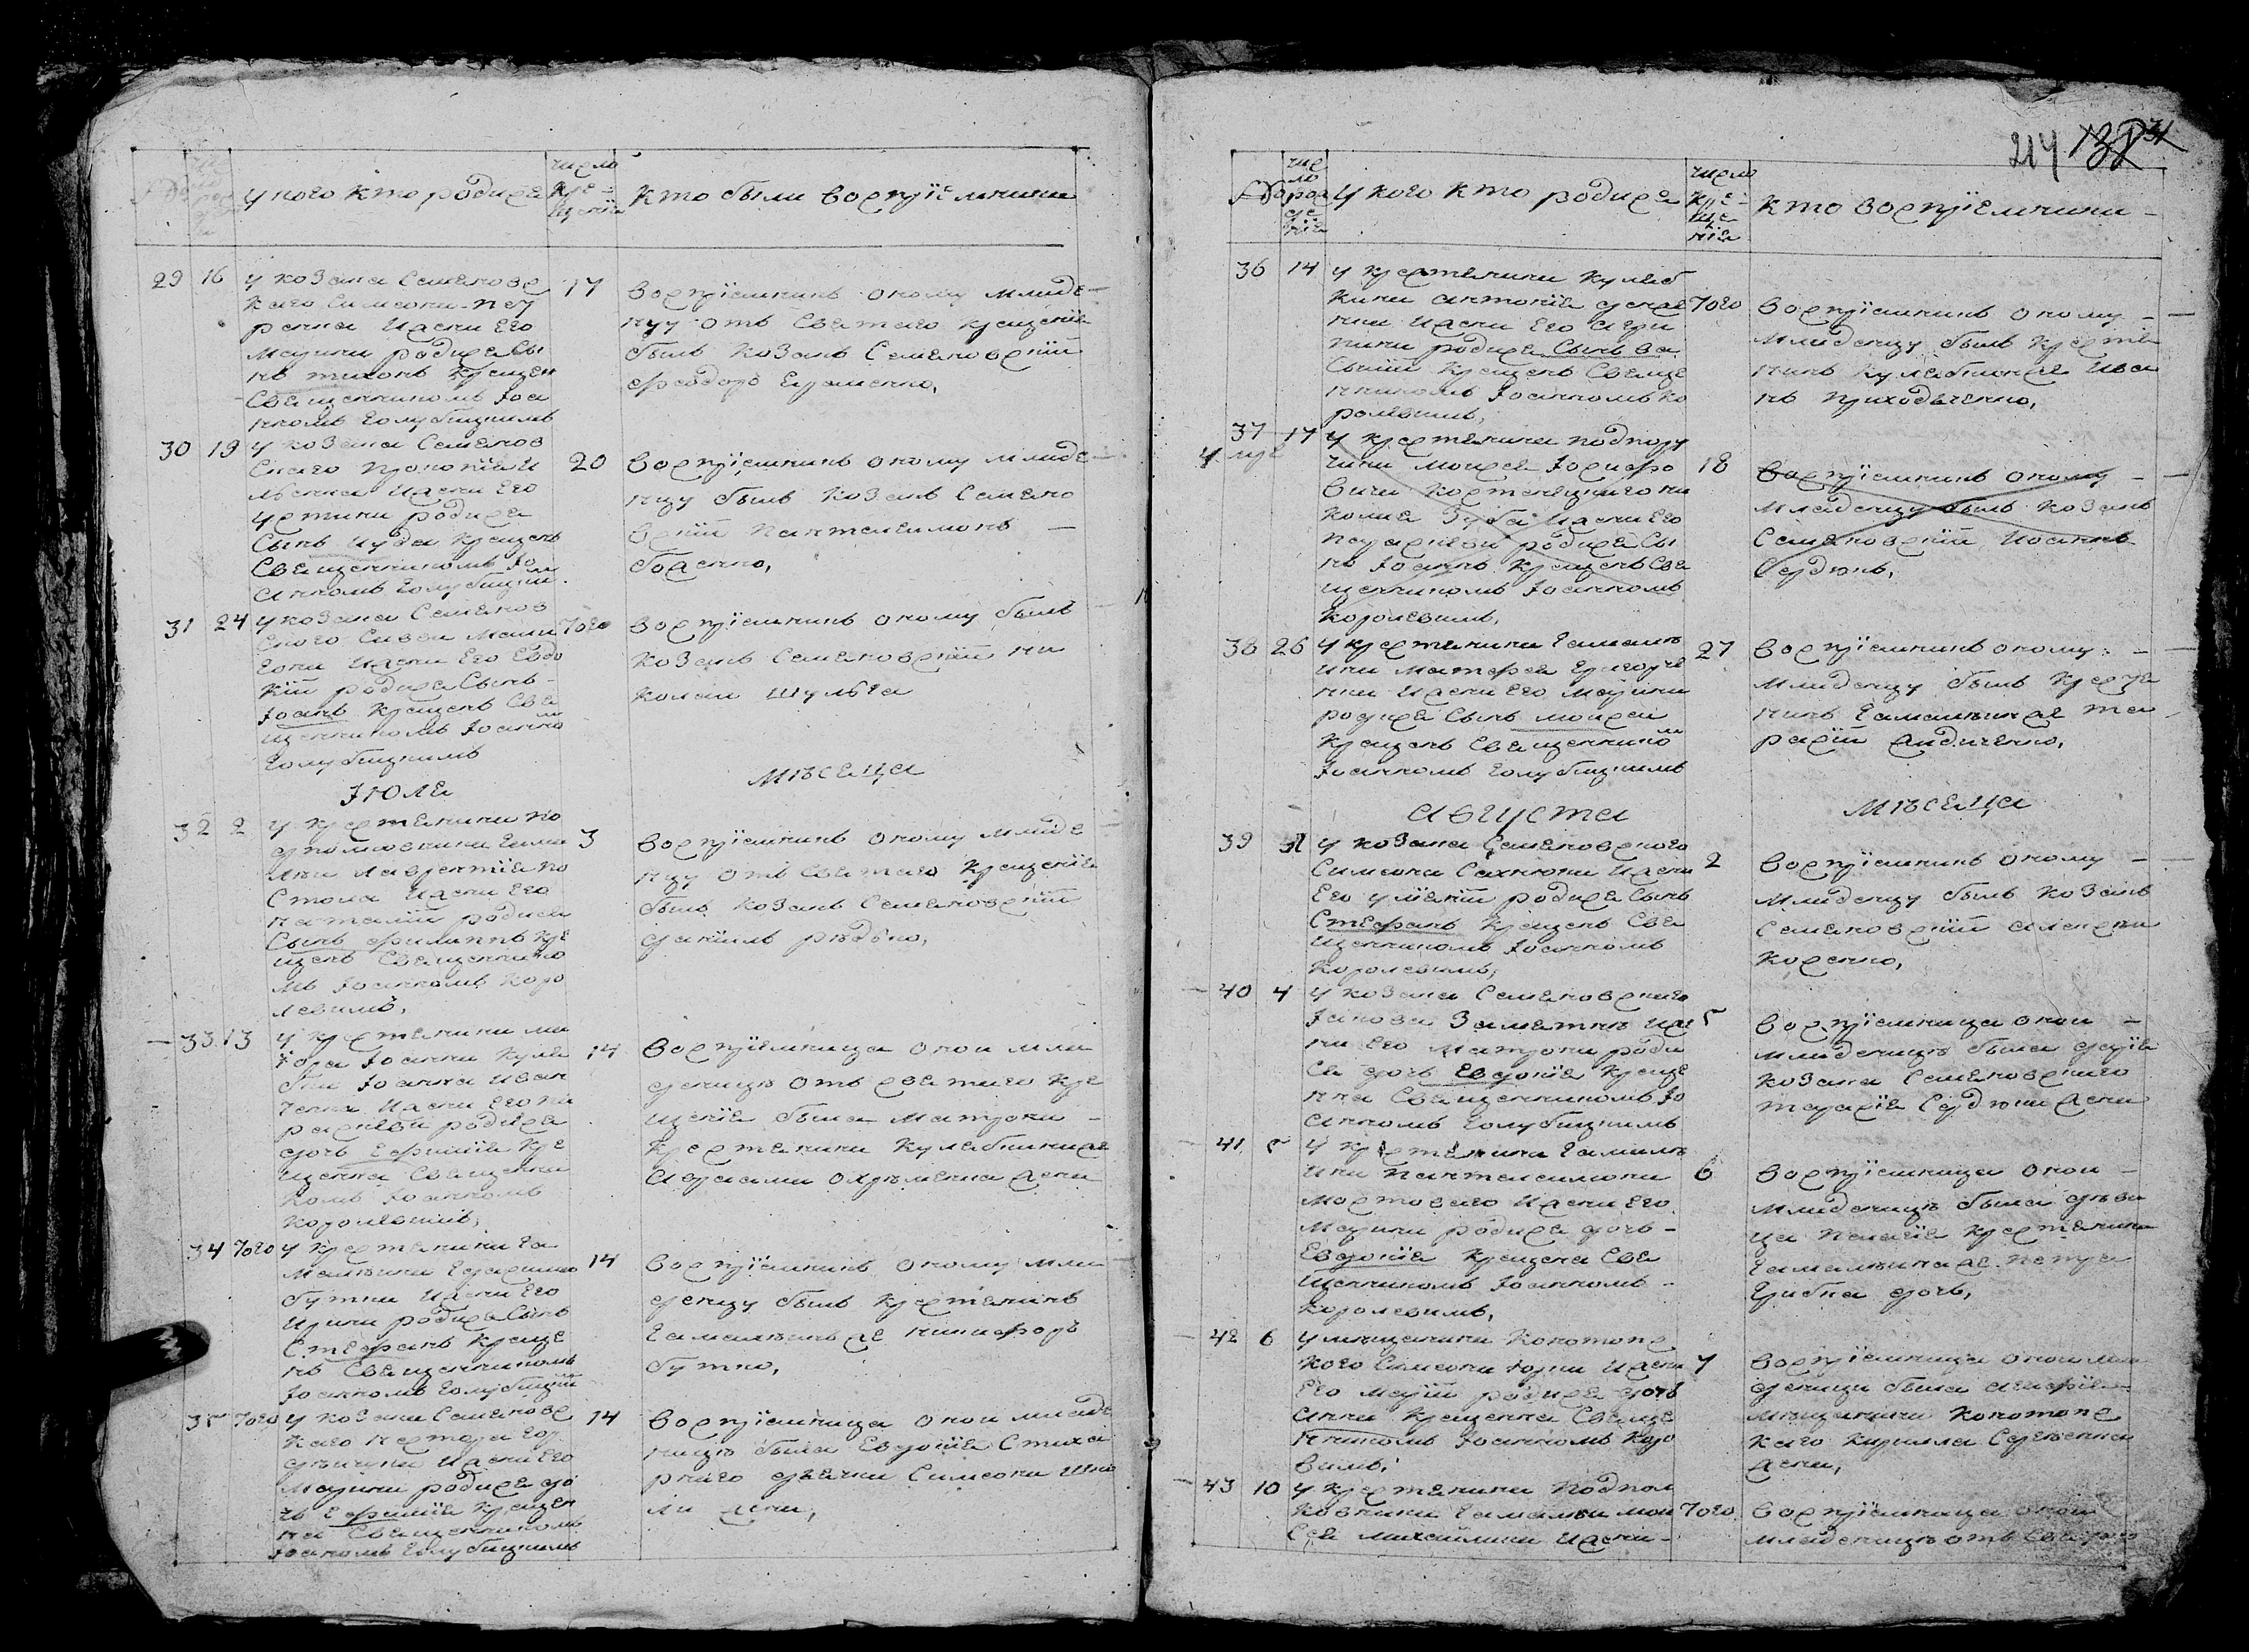 у кого кто родися
число кре-
щенія
кто были восприемники
29 16 у козака Семеновс
каго Симеона Пет
ренка жены его
Марины родися сы
нъ Тихонъ крещен
священникомъ Іоа
нномъ Голубницкимъ
17 восприемникъ оному младе-
нцу отъ святаго крещенія
былъ козакъ Семеновскій
Феодоръ Ераменко,
30 19 у козака Семенов
скаго Прокопія И
льенка жены его
Устины родися
сынъ Иуда крещенъ
священникомъ Іо
анномъ Голубницким
20 восприемникъ оному младе-
нцу былъ козакъ Семено
вскій Пантелеимонъ –
Боженко,
31 24 у козака Семенов
ского Савы Мали
его жены его Евдо
кіи родися сынъ –
Іоанъ крещенъ свя
щенникомъ Іоанно
Голубницкимъ
того восприемникъ оному былъ
козакъ Семеновскій ни
колай Шульга
Іюля
мѣсяца
32 2 у крестянина по
дполковника Гама
лѣи Лаврентія По
стола жены его
Наталіи родися
сынъ Филиппъ кре
щенъ священнико
мъ Іоанномъ Коро
левимъ,
3 восприемникъ оному младе
нцу отъ святаго крещенія
былъ козакъ Семеновскій
Даніилъ Рѣдько,
33 13 у крестянина ма
іора Іоанна Куле
бки Іоанна Иван
ченка жены его Па
раскевіи родися
дочь Ефимія кре
щенна священни
комъ Іоанномъ
Королевимъ,
14 восприемница оной мла
денице отъ святаго кре
щенія была Матрона –
крестянина Кулябкинца
Авраама Охрѣменка жена
34 того у крестянина Га
малѣина Герасима
Бутка жены его
Ирины родися сынъ
Стефанъ креще
нъ священникомъ
Іоанномъ Голубницкій
14 восприемникъ оному мла
денцу былъ крестянинъ
Гамалѣинъ же Никифоръ
Бутко,
35 того у козака Семеновс
каго Нестора Гор
дѣичка жены его
Марины родися до
чь Ефимія крещен
на священникомъ
Іоаномъ Голубницкимъ
14 восприемница оной младе
ницѣ была Евдокія стиха
рнаго дьячка Симеона Шко
ли жена,
214
у кого кто родися
число кре-
ще
нія
кто восприемники –
36 14 у крестянина Куляб
кина Антонія Дека
нка жены его Агри
пины родися сынъ Ва
силій крещенъ свяще
нникомъ Іоанномъ Ко
ролевимъ,
того восприемникъ оному –
младенцу былъ крестя
нинъ Кулябкинже Ива
нъ Приходченко,
37 17 у крестянина подпору
чика Моисея Іосифо
вича Костенецкаго Ни
колая Зуба жены его
Параскевіи родися сы
нъ Іоаннъ крещенъ свя
щенникомъ Іоанномъ
Королевимъ,
18 восприемникъ оному –
младенцу былъ козакъ
Семеновскій Иоаннъ
Сердюкъ,
38 26 у крестянина Гамалѣ
ина Матфея Григорче
нка жены его Марины
родися сынъ Моисей
крещенъ священнико
Іоанномъ Голубницкимъ
27 восприемникъ оному –
младенцу былъ крестя
нинъ Гамалѣинже Та
расій Сидиченко,
Августа
мѣсяца
39 1 у козака Семеновского
Симеона Сахнюка жены
его Уліянiи родися сынъ
Стефанъ крещенъ свя
щенникомъ Іоанномъ
Королевимъ,
2 восприемникъ оному –
младенцу былъ козакъ
Семеновскій Алексѣй
Косенко,
40 4 у козака Семеновскаго
Іакова Заметнѣ же
ни его Матроны роди
ся дочь Евдокія креще
нна священникомъ Іо
анномъ Голубницкимъ
5 восприемница оной –
младеницѣ была Дарія
козака Семеновскаго
Тарасія Сердюка жена
41 5 у крестянина Гамалѣ
ина Пантелеимона
Мортоваго жены его
Марины родися дочь –
Евдокія крещена свя
щенникомъ Іоанномъ –
Королевимъ,
6 восприемница оной –
младеницѣ была дѣви
ца Палагія крестянина
Гамалѣинаже Петра
Грибка дочь,
42 6 у мѣщанина Конотопс
кого Симеона жены
его Маріи родися дочь
Анна крещенна свяще
нникомъ Іоанномъ Коро
вимъ,
7 восприемница оной мла
деници была Агафія –
мѣщанина Конотопс
каго Кирилла Сергѣенка
жена,
43 10 у крестянина подпол
ковника Гамалѣи Мои
сея Михайлика жены –
того восприемница оной
младеницѣ отъ святого